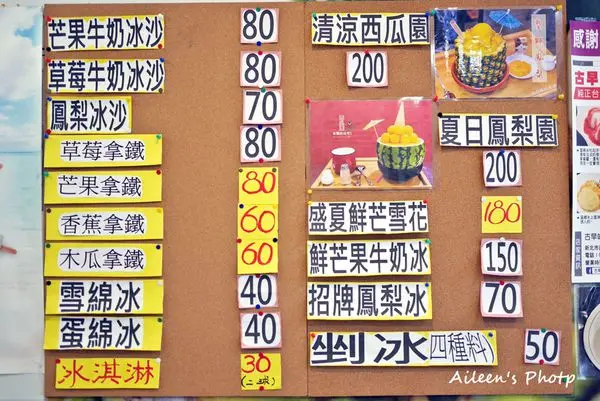 芒果牛奶冰沙 80
草莓牛奶冰沙 80
鳳梨冰沙 70
草莓拿鐵 80
芒果拿鐵 80
香蕉拿鐵 60
木瓜拿鐵 60
雪綿冰 40
蛋綿冰 40
冰淇淋 30
(二球)
清涼西瓜園
200
夏日鳳梨園
200
盛夏鮮芒雪花 180
鮮芒果牛奶冰 150
招牌鳳梨冰 70
剉冰(四種料) 50
感謝
古早
純正台
Aileen's Photo